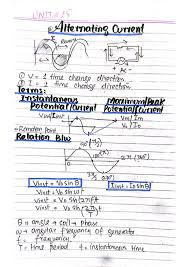 UNIT#15
Alternating Current
① V = 1 time change direction
② T = 2 time change direction
Terms:
Instantaneous Maximum/Peak
Potential/Current Potential/Current
Vinst/Iinst Vo/Io
Relation Blw
Vinst = Vo Sin θ Iinst = Io Sin θ
Vinst = Vo Sin wt
Vinst = Vo Sin (2πf)t
Vinst = Vo Sin (2π/T)t
θ = angle → coil → Phase
w = angular frequency of generator
f = frequency
T = time period t = instantaneous time